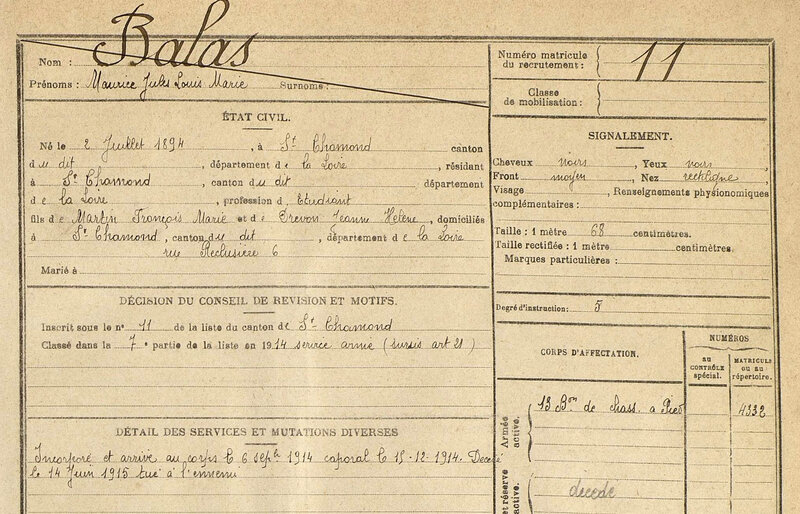 Nom : Balas
Prénoms : Maurice Jules Louis Marie Surnoms :
ÉTAT CIVIL.
Né le 2 Juillet 1894, à St Chamond canton
du dit, département de la Loire, résidant
à St Chamond, canton du dit département
de la Loire, profession d Etudiant
fils de Martin François Marie et de Prevon Jeanne Hélène, domiciliés
à St Chamond, canton du dit, département de la Loire
rue Reclusière 6
Marié à
DÉCISION DU CONSEIL DE REVISION ET MOTIFS.
Inscrit sous le n° 11 de la liste du canton de St Chamond
Classé dans la 7e partie de la liste en 1914 service armé (sursis art 21)
DÉTAIL DES SERVICES ET MUTATIONS DIVERSES
Incorporé et arrivé au corps le 6 septbre 1914 caporal le 15-12-1914. Decedé
le 14 Juin 1915 tué à l'ennemi
Numéro matricule
du recrutement : 11
Classe
de mobilisation :
SIGNALEMENT.
Cheveux noirs, Yeux noirs
Front moyen, Nez rectiligne
Visage , Renseignements physionomiques
complémentaires :
Taille : 1 mètre 68 centimètres.
Taille rectifiée : 1 mètre centimètres.
Marques particulières :
Degré d'instruction : 5
CORPS D'AFFECTATION.
NUMÉROS
au
CONTRÔLE
spécial.
MATRICULE
ou au
répertoire.
Armée
active.
13 Bon de chass. a Pied 4332
et réserve
active.
decedé